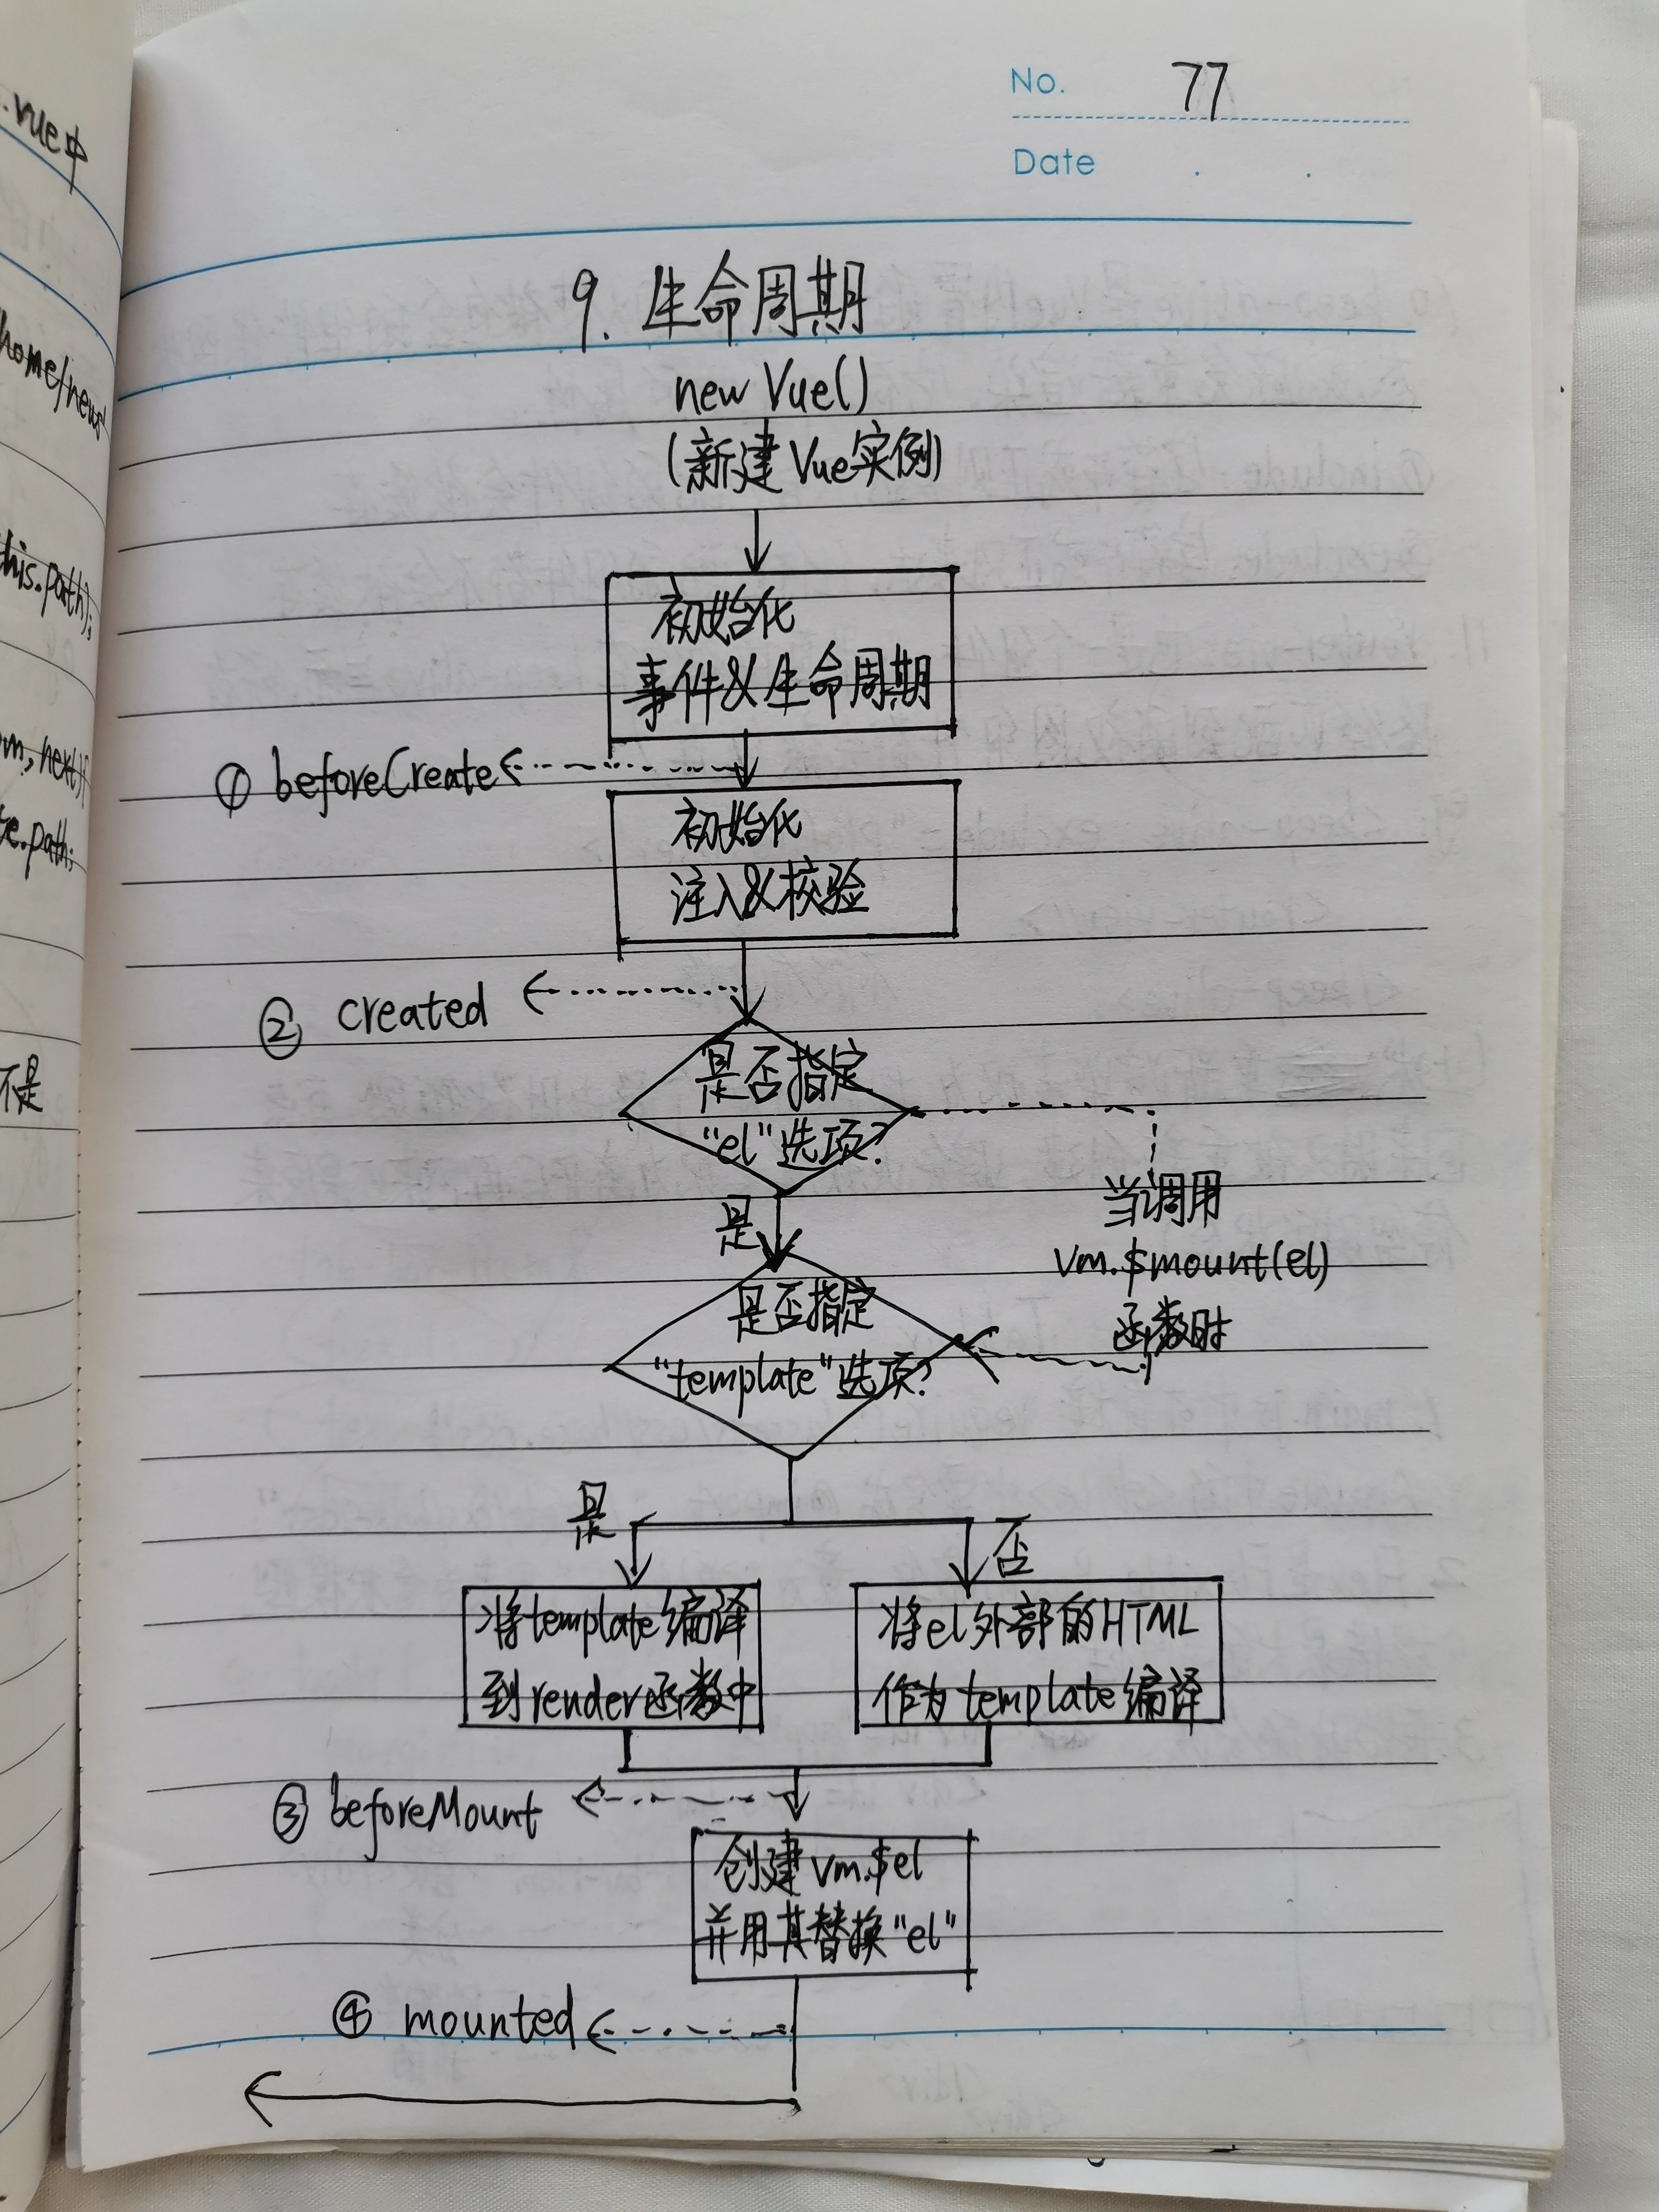 .vue中
home/news
this.path);
om,next){
te.path;
不是
No. 77
Date . .
9. 生命周期
new Vue()
(新建Vue实例)
初始化
事件&生命周期
① beforeCreate
初始化
注入&校验
② created
是否指定
"el"选项?
是
当调用
vm.$mount(el)
函数时
是否指定
"template"选项?
是
否
将template编译
到render函数中
将el外部的HTML
作为template编译
③ beforeMount
创建vm.$el
并用其替换"el"
④ mounted